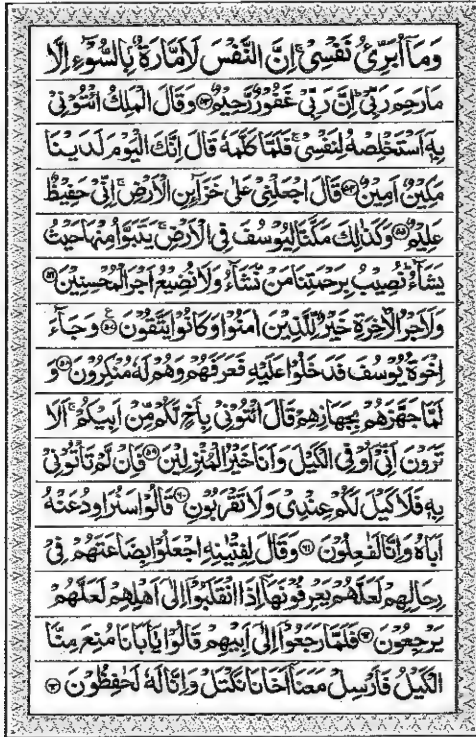 وَمَآ اُبَرِّئُ نَفْسِیْ ۚ اِنَّ النَّفْسَ لَاَمَّارَةٌۢ بِالسُّوْٓءِ اِلَّا
مَا رَحِمَ رَبِّیْ ؕ اِنَّ رَبِّیْ غَفُوْرٌ رَّحِیْمٌ ۝۵۳ وَقَالَ الْمَلِكُ ائْتُوْنِیْ
بِهٖۤ اَسْتَخْلِصْهُ لِنَفْسِیْ ۚ فَلَمَّا كَلَّمَهٗ قَالَ اِنَّكَ الْیَوْمَ لَدَیْنَا
مَكِیْنٌ اَمِیْنٌ ۝۵۴ قَالَ اجْعَلْنِیْ عَلٰی خَزَآىِٕنِ الْاَرْضِ ۚ اِنِّیْ حَفِیْظٌ
عَلِیْمٌ ۝۵۵ وَكَذٰلِكَ مَكَّنَّا لِیُوْسُفَ فِی الْاَرْضِ ۚ یَتَبَوَّاُ مِنْهَا حَیْثُ
یَشَآءُ ؕ نُصِیْبُ بِرَحْمَتِنَا مَنْ نَّشَآءُ وَلَا نُضِیْعُ اَجْرَ الْمُحْسِنِیْنَ ۝۵۶
وَلَاَجْرُ الْاٰخِرَةِ خَیْرٌ لِّلَّذِیْنَ اٰمَنُوْا وَكَانُوْا یَتَّقُوْنَ ۝۵۷ ع وَجَآءَ
اِخْوَةُ یُوْسُفَ فَدَخَلُوْا عَلَیْهِ فَعَرَفَهُمْ وَهُمْ لَهٗ مُنْكِرُوْنَ ۝۵۸ وَ
لَمَّا جَهَّزَهُمْ بِجَهَازِهِمْ قَالَ ائْتُوْنِیْ بِاَخٍ لَّكُمْ مِّنْ اَبِیْكُمْ ۚ اَلَا
تَرَوْنَ اَنِّیْۤ اُوْفِی الْكَیْلَ وَاَنَا خَیْرُ الْمُنْزِلِیْنَ ۝۵۹ فَاِنْ لَّمْ تَاْتُوْنِیْ
بِهٖ فَلَا كَیْلَ لَكُمْ عِنْدِیْ وَلَا تَقْرَبُوْنِ ۝۶۰ قَالُوْا سَنُرَاوِدُ عَنْهُ
اَبَاهُ وَاِنَّا لَفٰعِلُوْنَ ۝۶۱ وَقَالَ لِفِتْیٰنِهِ اجْعَلُوْا بِضَاعَتَهُمْ فِیْ
رِحَالِهِمْ لَعَلَّهُمْ یَعْرِفُوْنَهَاۤ اِذَا انْقَلَبُوْۤا اِلٰۤی اَهْلِهِمْ لَعَلَّهُمْ
یَرْجِعُوْنَ ۝۶۲ فَلَمَّا رَجَعُوْۤا اِلٰۤی اَبِیْهِمْ قَالُوْا یٰۤاَبَانَا مُنِعَ مِنَّا
الْكَیْلُ فَاَرْسِلْ مَعَنَاۤ اَخَانَا نَكْتَلْ وَاِنَّا لَهٗ لَحٰفِظُوْنَ ۝۶۳